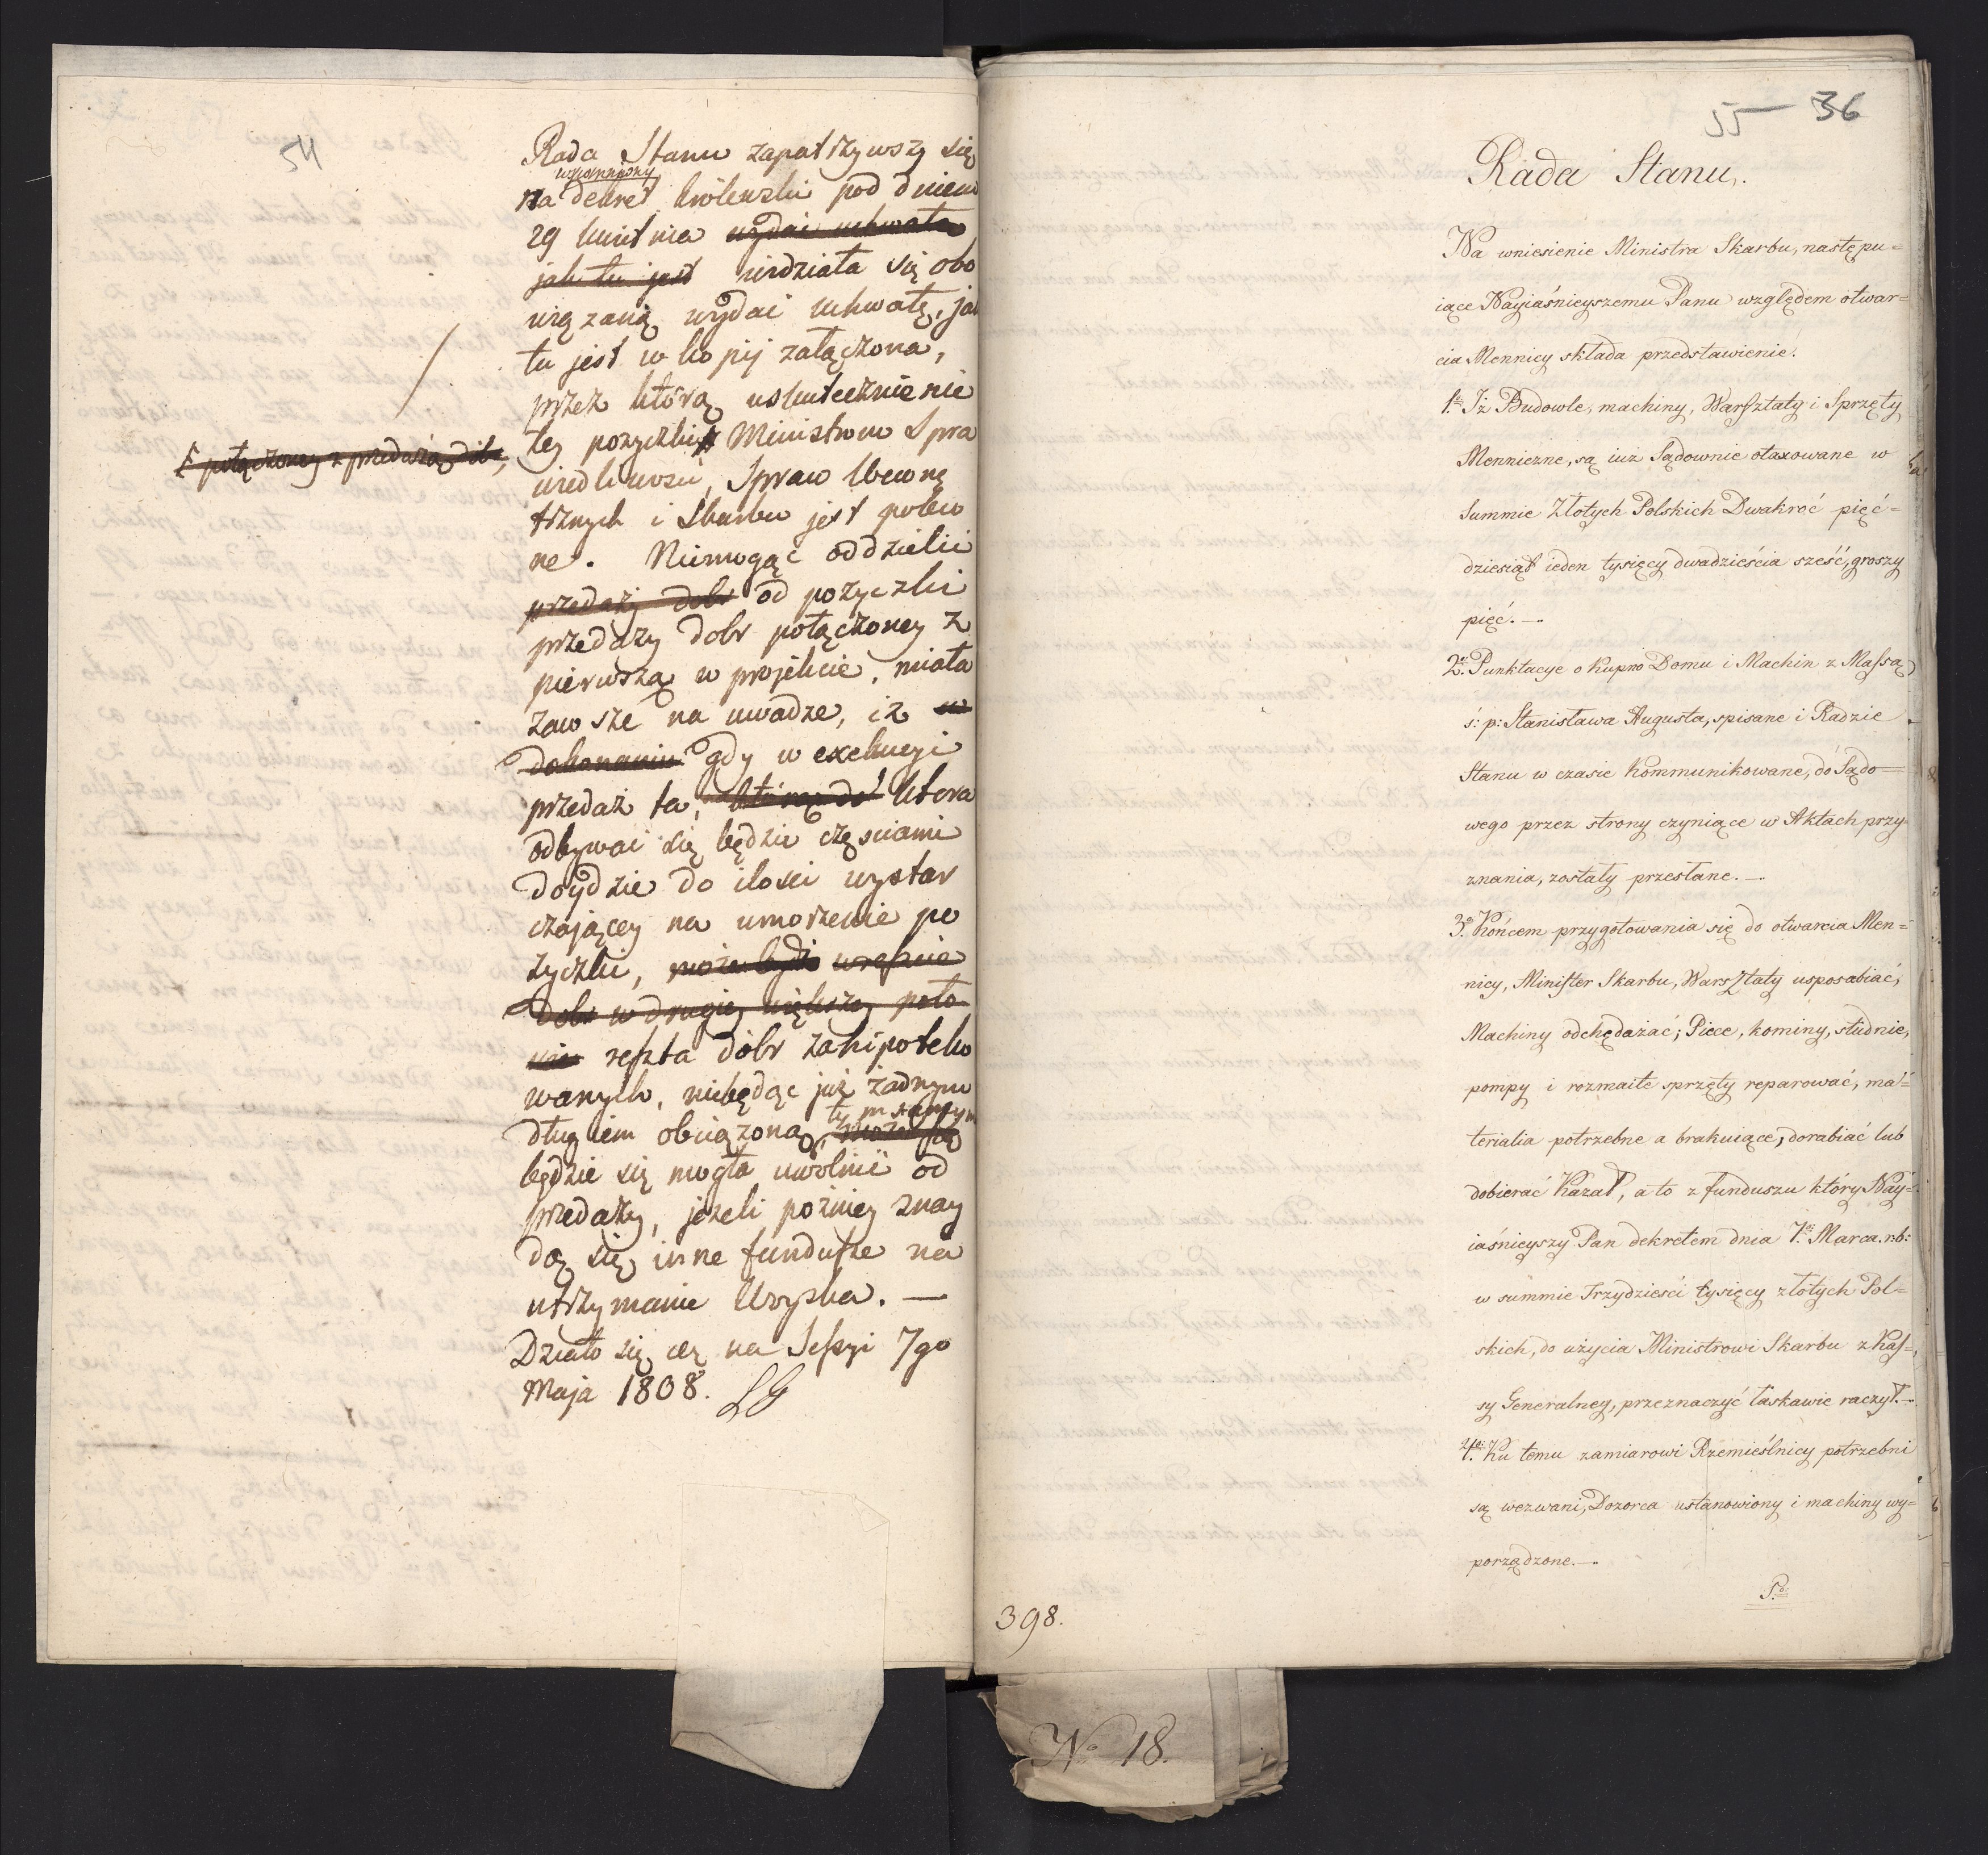 54
Rada Stanu zapatrzywszy się
wspomniony
na dekret królewski pod dniem
29 kwietnia wydać uchwałę
jak tu jest widziała się obo
wiązaną wydać uchwałę, jak
tu jest w kopij załączona,
przez którą uskutecznienie
tey pożyczki Ministrom Spra
F połączoney z przedażą dóbr,
wiedliwości, Spraw Wewnę
trznych i Skarbu jest poleco
ne. Niemogąc oddzielić
przedaży dobr od pożyczki
przedaży dobr połączoney z
pierwszą w projekcie, miała
zawsze na uwadze, iż w
dokonaniu gdy w exekucyi
przedaż ta, którą do ktora
odbywać się będzie częściami
doydzie do ilości wystar
czającey na umorzenie po
życzki, może będzie wreszcie
dobr w drugiey większey poło
wie reszta dóbr zahipoteko
wanych, niebędąc już żadnym
długiem obciążona, może się
tym samym
będzie się mogła uwolnić od
przedaży, jeżeli poźniey znay
dą się inne fundusze na
utrzymanie Woyska. —
Działo się na Sessyi 7go
Maja 1808. LG
55 — 36
Rada Stanu.
Na wniesienie Ministra Skarbu, następu=
iące Nayiaśnieyszemu Panu względem otwar=
cia Mennicy składa przedstawienie.
1o. Iż Budowle, machiny, Warsztaty i Sprzęty
Mennicze, są iuż Sądownie otaxowane w
Summie Złotych Polskich Dwakroć pięć=
dziesiąt ieden tysięcy dwadzieścia sześć, groszy
pięć. —
2o. Punktacye o kupno Domu i Machin z Massą
ś: p: Stanisława Augusta, spisane i Radzie
Stanu w czasie kommunikowane, do Sądo=
wego przez strony czyniące w Aktach przy=
znania, zostały przesłane. —
3o. Końcem przygotowania się do otwarcia Men=
nicy, Minister Skarbu, Warsztaty usposabiać,
Machiny odchędażać; Piece, kominy, studnie,
pompy i rozmaite sprzęty reparować, ma=
terialia potrzebne a brakuiące, dorabiać lub
dobierać kazał, a to z funduszu który Nay=
iaśnieyszy Pan dekretem dnia 7o. Marca. r:b:
w summie Trzydzieści tysięcy złotych Pol=
skich, do użycia Ministrowi Skarbu z Kas=
sy Generalney, przeznaczyć łaskawie raczył. —
4o. Ku temu zamiarowi Rzemieślnicy potrzebni
są wezwani, Dozorca ustanowiony i machiny wy=
porządzone. —
5o.
398.
No 18.